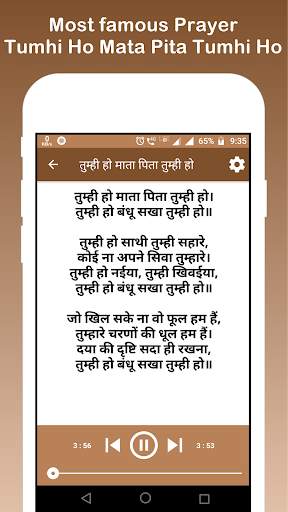 Most famous Prayer
Tumhi Ho Mata Pita Tumhi Ho
65% 9:35
तुम्ही हो माता पिता तुम्ही हो
तुम्ही हो माता पिता तुम्ही हो।
तुम्ही हो बंधू सखा तुम्ही हो॥
तुम्ही हो साथी तुम्ही सहारे,
कोई ना अपने सिवा तुम्हारे।
तुम्ही हो नईया, तुम्ही खिवईया,
तुम्ही हो बंधू सखा तुम्ही हो॥
जो खिल सके ना वो फूल हम हैं।
तुम्हारे चरणों की धूल हम हैं।
दया की दृष्टि सदा ही रखना,
तुम्ही हो बंधू सखा तुम्ही हो॥
3 : 56 3 : 53